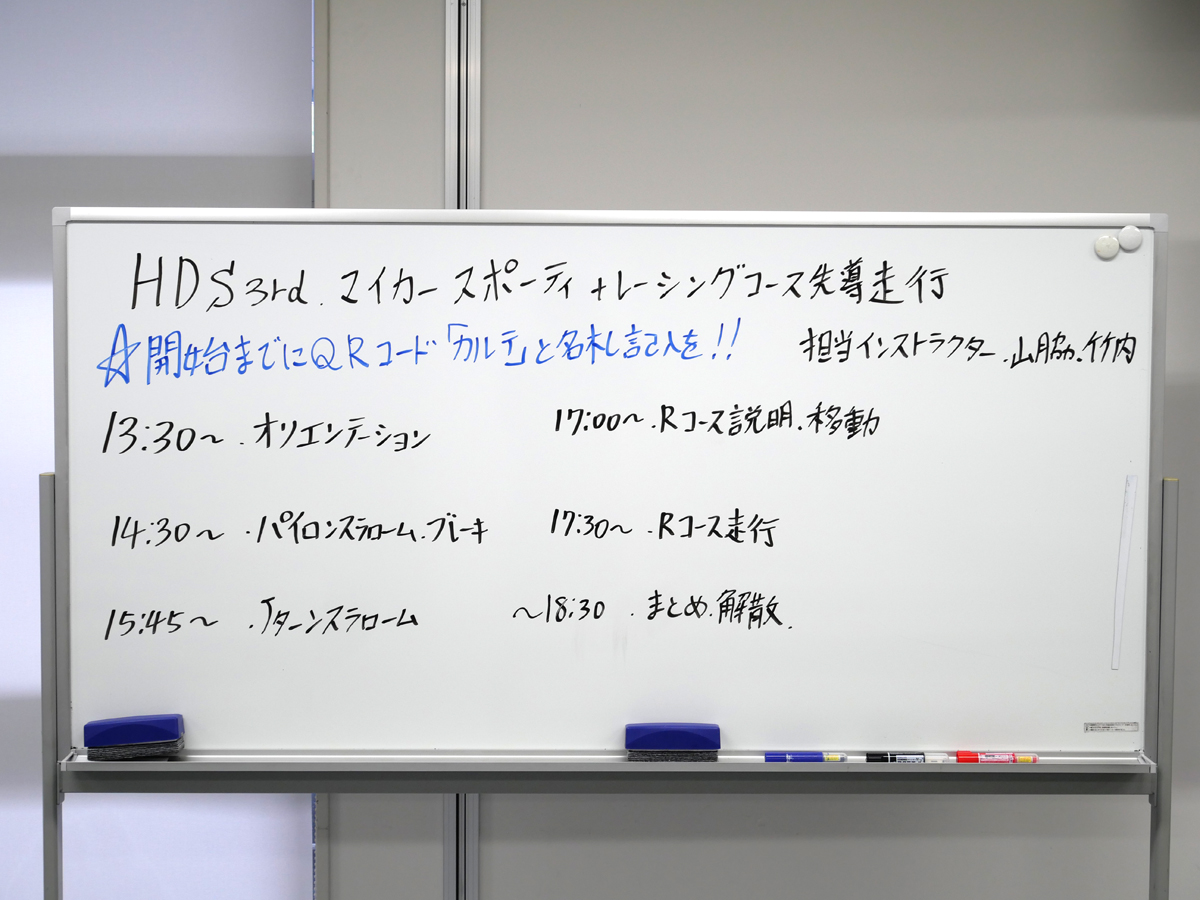 HDS 3rd. マイカー スポーティ + レーシングコース先導走行
☆開始までにQRコード「カルテ」と名札記入を!!
担当インストラクター.山脇.竹内
13:30～ .オリエンテーション
14:30～ .パイロンスラローム.ブレーキ
15:45～ .Jターンスラローム
17:00～ .Rコース説明.移動
17:30～ .Rコース走行
～18:30 .まとめ.解散.